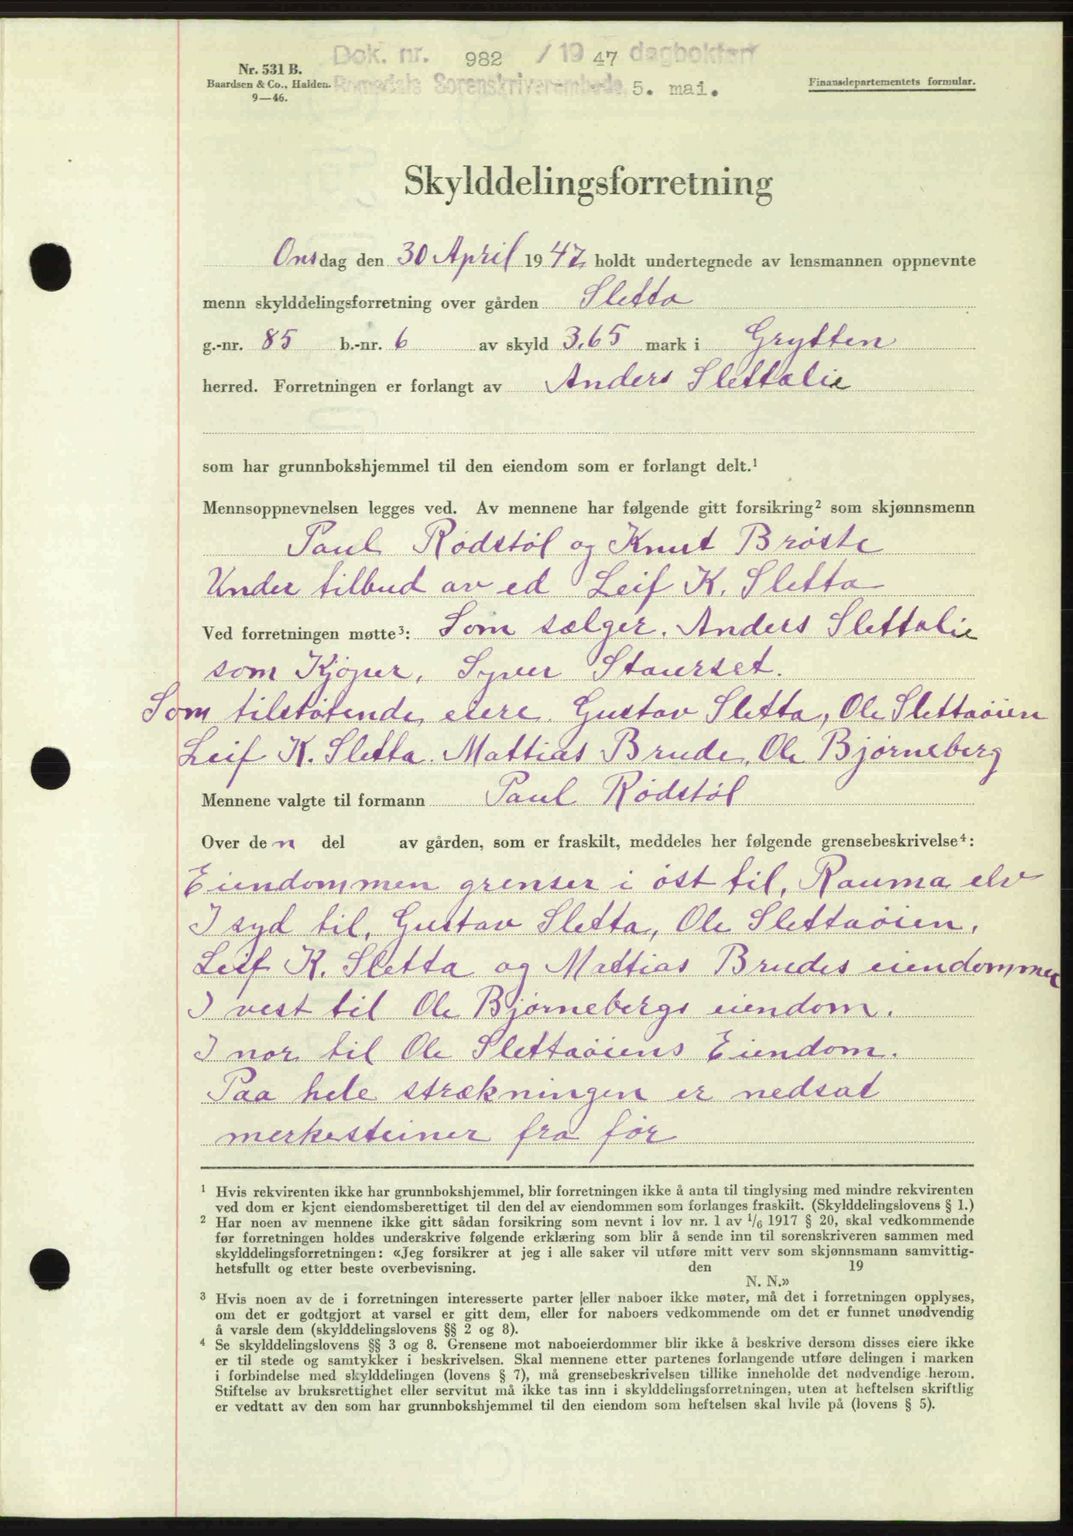 Dok. nr. 982 / 19 47 dagbokført
Nr. 531 B.
Baardsen & Co., Halden.
9—46.
Romsdals Sorenskriverembede 5. mai.
Finansdepartementets formular.
Skylddelingsforretning
Onsdag den 30 April 1947 holdt undertegnede av lensmannen oppnevnte
menn skylddelingsforretning over gården Sletta
g.-nr. 85 b.-nr. 6 av skyld 3.65 mark i Grytten
herred. Forretningen er forlangt av Anders Slettalie
som har grunnbokshjemmel til den eiendom som er forlangt delt.¹
Mennsoppnevnelsen legges ved. Av mennene har følgende gitt forsikring² som skjønnsmenn
Paul Rødstøl og Knut Brøste
Under tilbud av ed Leif K. Sletta
Ved forretningen møtte³: Som sælger. Anders Slettalie
som Kjøper, Syver Staurset.
Som tilstøtende eiere. Gustav Sletta, Ole Slettaøien
Leif K. Sletta. Mattias Brude, Ole Bjørneberg
Mennene valgte til formann Paul Rødstøl
Over den del av gården, som er fraskilt, meddeles her følgende grensebeskrivelse⁴:
Eiendommen grenser i øst til, Rauma elv
I syd til, Gustav Sletta, Ole Slettaøien,
Leif K. Sletta og Mattias Brudes eiendommer
I vest til Ole Bjørnebergs eiendom.
I nor til Ole Slettaøiens Eiendom.
Paa hele strækningen er nedsat
merkesteiner fra før
¹ Hvis rekvirenten ikke har grunnbokshjemmel, blir forretningen ikke å anta til tinglysing med mindre rekvirenten
ved dom er kjent eiendomsberettiget til den del av eiendommen som forlanges fraskilt. (Skylddelingslovens § 1.)
² Har noen av mennene ikke gitt sådan forsikring som nevnt i lov nr. 1 av 1/6 1917 § 20, skal vedkommende
før forretningen holdes underskrive følgende erklæring som blir å sende inn til sorenskriveren sammen med
skylddelingsforretningen: «Jeg forsikrer at jeg i alle saker vil utføre mitt verv som skjønnsmann samvittig-
hetsfullt og etter beste overbevisning. den 19
N. N.»
³ Hvis noen av de i forretningen interesserte parter (eller naboer ikke møter, må det i forretningen opplyses,
om det er godtgjort at varsel er gitt dem, eller for naboers vedkommende om det er funnet unødvendig
å varsle dem (skylddelingslovens §§ 2 og 8).
⁴ Se skylddelingslovens §§ 3 og 8. Grensene mot naboeierdommer blir ikke å beskrive dersom disses eiere ikke
er til stede og samtykker i beskrivelsen. Skal mennene etter partenes forlangende utføre delingen i marken
i forbindelse med skylddelingen (lovens § 7), må grensebeskrivelsen tillike inneholde det nødvendige herom.
Stiftelse av bruksrettighet eller servitut må ikke tas inn i skylddelingsforretningen, uten at heftelsen skriftlig
er vedtatt av den som har grunnbokshjemmel til den eiendom som heftelsen skal hvile på (lovens § 5).